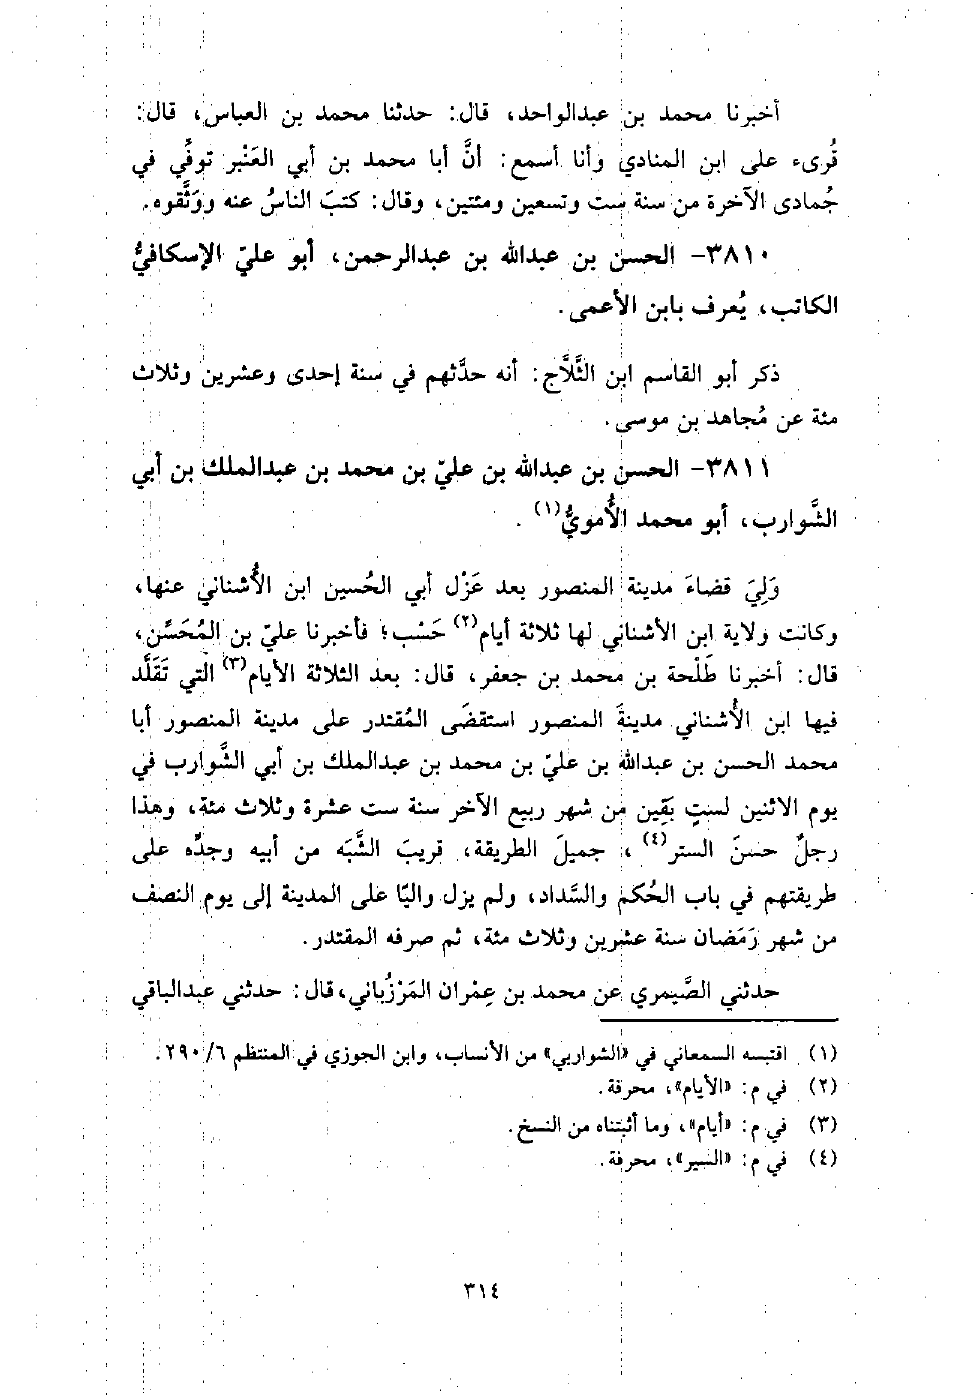 أخبرنا محمد بن عبدالواحد، قال: حدثنا محمد بن العباس، قال:
قُرىء على ابن المنادي وأنا أسمع: أنَّ أبا محمد بن أبي العَنْبر توفِّي في
جُمادى الآخرة من سنة ست وتسعين ومئتين، وقال: كتبَ الناسُ عنه ووَثَّقوه.
٣٨١٠- الحسن بن عبدالله بن عبدالرحمن، أبو عليّ الإسكافيُّ
الكاتب، يُعرف بابن الأعمى.
ذكر أبو القاسم ابن الثَّلَّاج: أنه حدَّثهم في سنة إحدى وعشرين وثلاث
مئة عن مُجاهد بن موسى.
٣٨١١- الحسن بن عبدالله بن عليّ بن محمد بن عبدالملك بن أبي
الشَّوارب، أبو محمد الأُمويُّ(١) .
وَلِيَ قضاءَ مدينة المنصور بعد عَزْل أبي الحُسين ابن الأُشناني عنها،
وكانت ولاية ابن الأشناني لها ثلاثة أيام(٢) حَسْب؛ فأخبرنا عليّ بن المُحَسِّن،
قال: أخبرنا طَلْحة بن محمد بن جعفر، قال: بعد الثلاثة الأيام(٣) التي تَقَلَّد
فيها ابن الأُشناني مدينةَ المنصور استقضَى المُقتدر على مدينة المنصور أبا
محمد الحسن بن عبدالله بن عليّ بن محمد بن عبدالملك بن أبي الشَّوارب في
يوم الاثنين لستٍ بَقِين من شهر ربيع الآخر سنة ست عشرة وثلاث مئة، وهذا
رجلٌ حسنَ الستر(٤) ، جميلَ الطريقة، قريبَ الشَّبَه من أبيه وجدِّه على
طريقتهم في باب الحُكم والسَّداد، ولم يزل واليًا على المدينة إلى يوم النصف
من شهر رَمَضان سنة عشرين وثلاث مئة، ثم صرفه المقتدر.
حدثني الصَّيمري عن محمد بن عِمْران المَرْزُباني، قال: حدثني عبدالباقي
(١) اقتبسه السمعاني في «الشواربي» من الأنساب، وابن الجوزي في المنتظم ٦/ ٢٩٠.
(٢) في م: «الأيام»، محرفة.
(٣) في م: «أيام»، وما أثبتناه من النسخ.
(٤) في م: «السير»، محرفة.
٣١٤